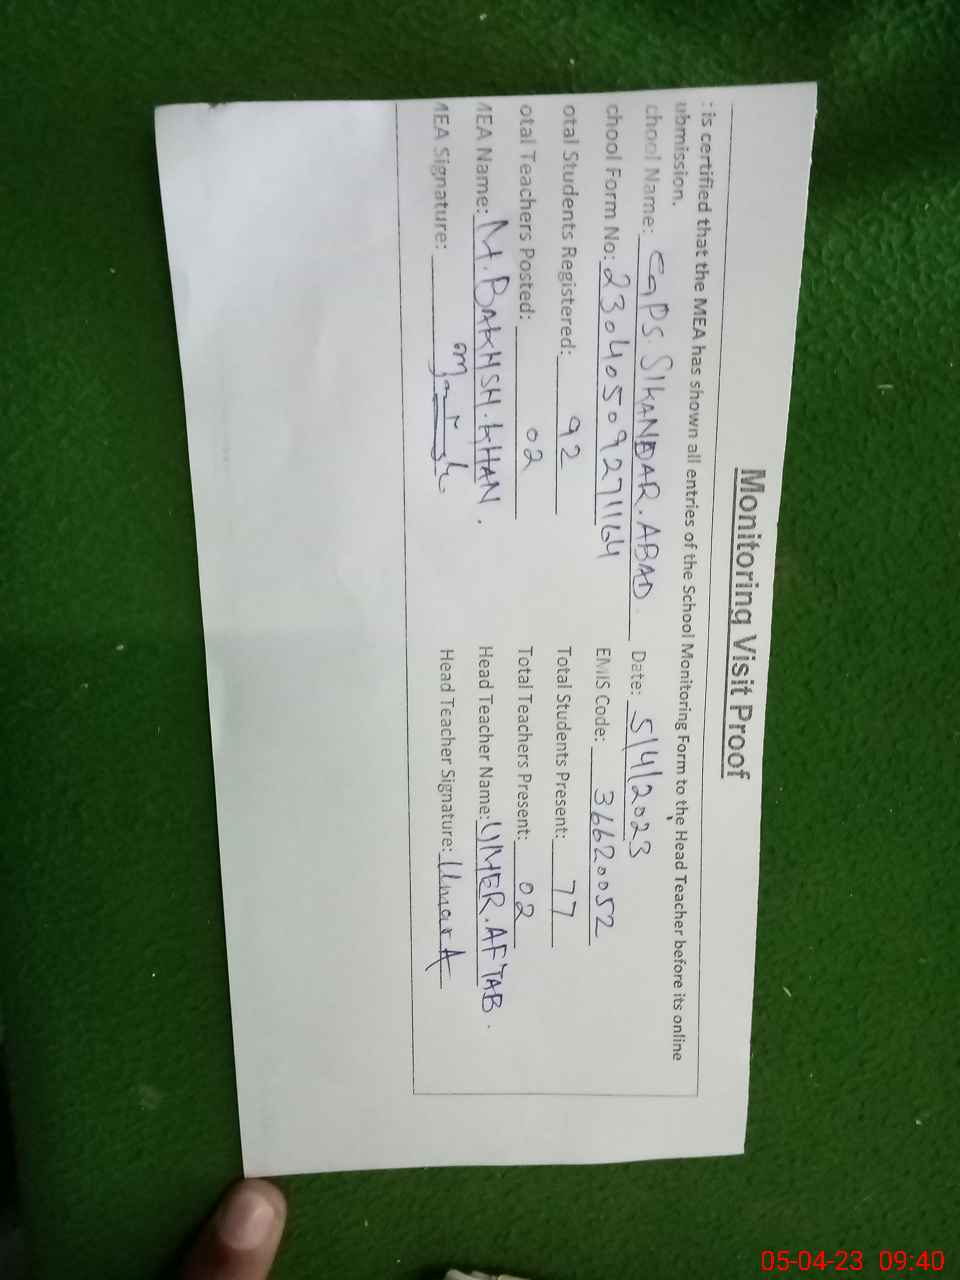 Monitoring Visit Proof
: is certified that the MEA has shown all entries of the School Monitoring Form to the Head Teacher before its online
ubmission.
chool Name: GPS. SIKANDAR. ABAD. Date: 5/4/2023
chool Form No: 23040509271164 EMIS Code: 36620052
otal Students Registered: 92 Total Students Present: 77
otal Teachers Posted: 02 Total Teachers Present: 02
MEA Name: M. BAKHSH. KHAN. Head Teacher Name: UMER. AFTAB.
MEA Signature: Head Teacher Signature: Umar A
05-04-23 09:40